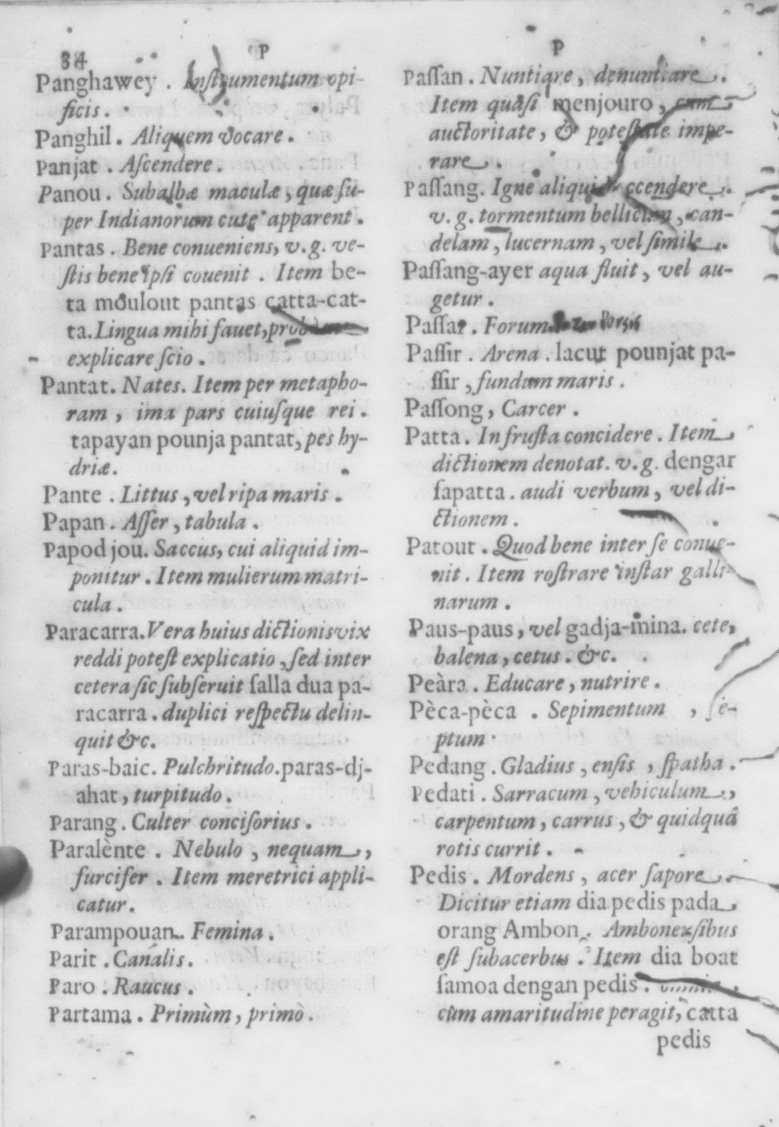 84 P
Panghawey . Instrumentum opi-
ficis.
Panghil. Aliquem vocare.
Panjat . Ascendere.
Panou. Subalbæ maculæ, quæ su-
per Indianorum cute apparent.
Pantas . Bene conueniens, v.g. ve-
stis bene ipsi couenit . Item be-
ta moulout pantas catta-cat-
ta. Lingua mihi fauet,
explicare scio .
Pantat. Nates. Item per metapho-
ram , ima pars cuiusque rei .
tapayan pounja pantat, pes hy-
driæ.
Pante . Littus, vel ripa maris .
Papan . Asser, tabula .
Papod jou. Saccus, cui aliquid im-
ponitur . Item mulierum matri-
cula .
Paracarra. Vera huius dictionis vix
reddi potest explicatio, sed inter
cetera sic subseruit salla dua pa-
racarra . duplici respectu delin-
quit &c.
Paras-baic. Pulchritudo. paras-dj-
ahat, turpitudo .
Parang . Culter concisorius .
Paralènte . Nebulo , nequam ,
furcifer . Item meretrici appli-
catur.
Parampouan. Femina .
Parit . Canalis .
Paro . Raucus .
Partama . Primùm, primò .
P
Passan . Nuntiare, denuntiare .
Item quasi menjouro, cum
auctoritate, & potestate impe-
rare .
Passang. Igne aliquid ccendere .
v. g. tormentum bellicum, can-
delam, lucernam, vel simile .
Passang-ayer aqua fluit, vel au-
getur .
Passar . Forum
Passir . Arena . lacut pounjat pa-
ssir, fundum maris .
Passong, Carcer .
Patta . In frusta concidere . Item
dictionem denotat. v. g. dengar
sapatta . audi verbum, vel di-
ctionem .
Patout . Quod bene inter se conue-
nit . Item rostrare instar galli-
narum .
Paus-paus, vel gadja-mina. cete,
balena, cetus . &c.
Peàra . Educare, nutrire .
Pèca-pèca . Sepimentum , sè-
ptum
Pedang . Gladius, ensis , spatha .
Pedati . Sarracum, vehiculum ,
carpentum, carrus, & quidquã
rotis currit .
Pedis . Mordens, acer sapore .
Dicitur etiam dia pedis pada
orang Ambon . Ambonensibus
est subacerbus . Item dia boat
samoa dengan pedis . omnia
cùm amaritudine peragit, catta
pedis